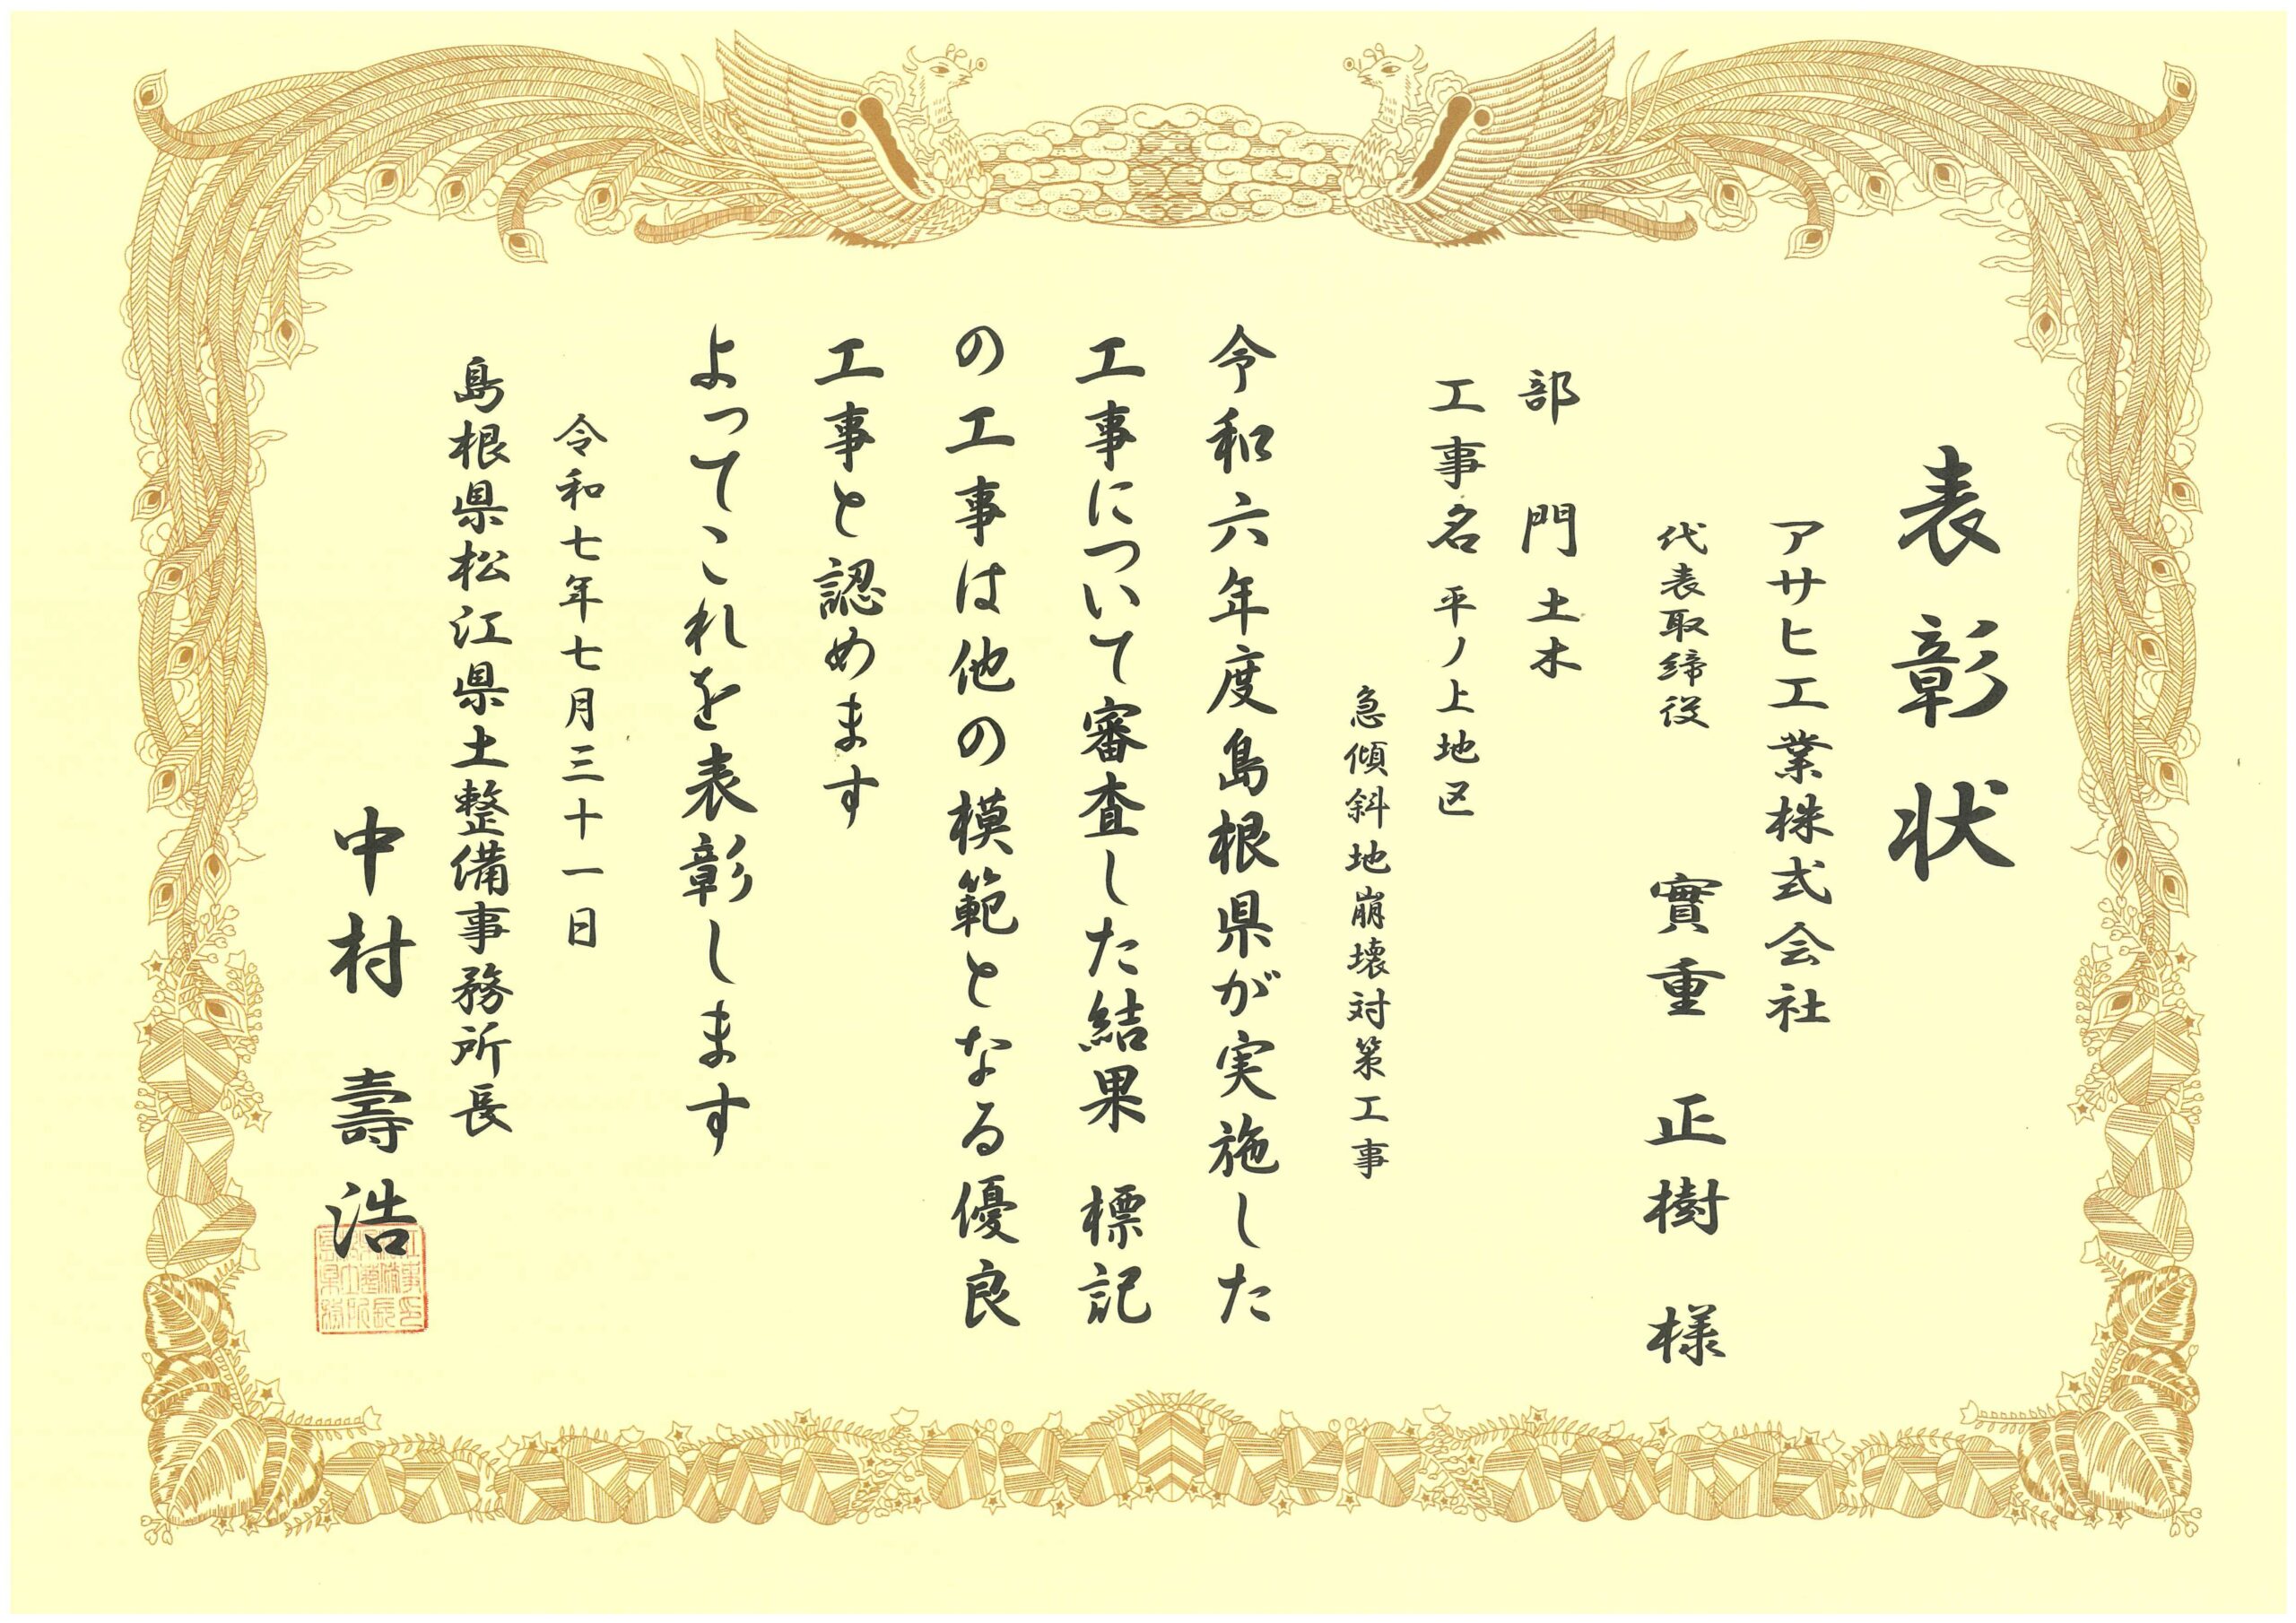 表彰状
アサヒ工業株式会社
代表取締役 實重 正樹 様
部門 土木
工事名 平ノ上地区
急傾斜地崩壊対策工事
令和六年度島根県が実施した
工事について審査した結果 標記
の工事は他の模範となる優良
工事と認めます
よってこれを表彰します
令和七年七月三十一日
島根県松江県土整備事務所長
中村 壽浩